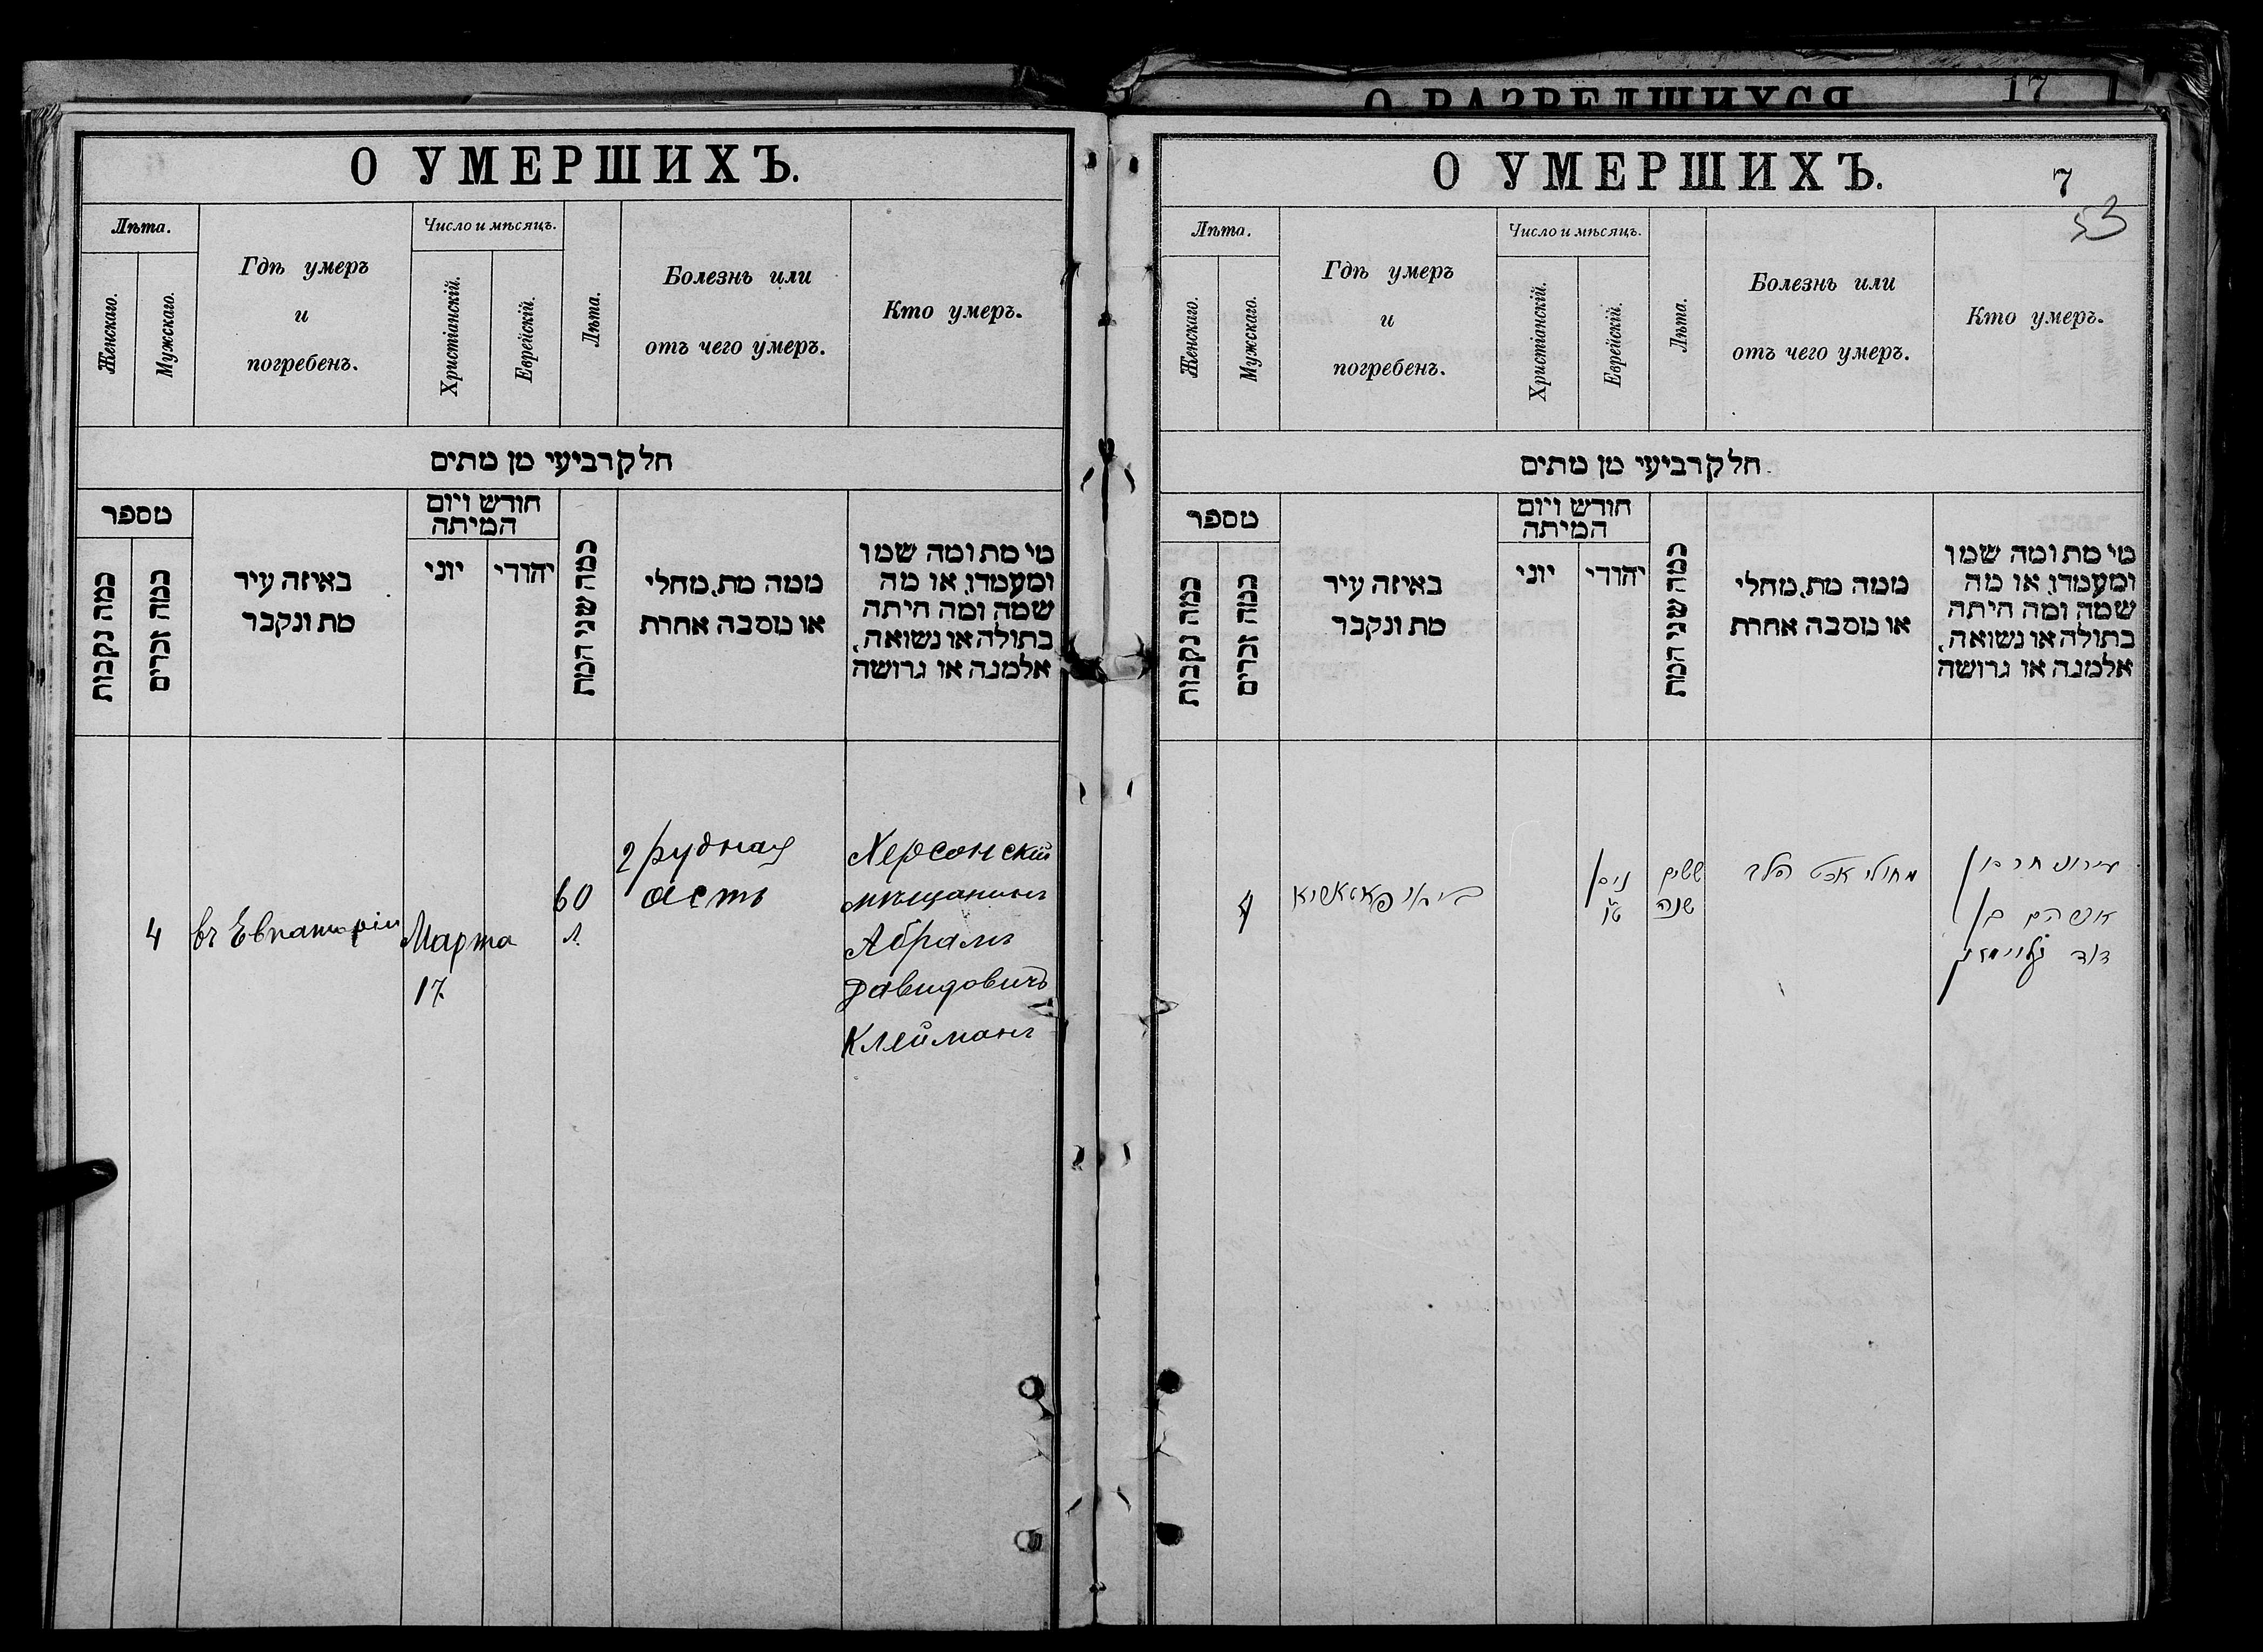 О РАЗВЕДШИХСЯ
17
О УМЕРШИХЪ.
Лѣта.
Женскаго.
Мужскаго.
Гдѣ умеръ
и
погребенъ.
Число и мѣсяцъ.
Христіанскій.
Еврейскій.
Лѣта.
Болезнь или
отъ чего умеръ.
Кто умеръ.
חלק רביעי מן מתים
מספר
כמה נקבות
כמה זכרים
באיזה עיר
מת ונקבר
חודש ויום
המיתה
יוני
יהודי
כמה שני המת
ממה מת, מחלי
או מסבה אחרת
מי מת ומה שמו
ומעמדו, או מה
שמה ומה היתה
בתולה או נשואה,
אלמנה או גרושה
4
въ Евпаторіи
Марта
17
60
л.
грудная
Херсонскій
мѣщанинъ
Абрамъ
Давидовичъ
Клейманъ
О УМЕРШИХЪ.
7
53
Лѣта.
Женскаго.
Мужскаго.
Гдѣ умеръ
и
погребенъ.
Число и мѣсяцъ.
Христіанскій.
Еврейскій.
Лѣта.
Болезнь или
отъ чего умеръ.
Кто умеръ.
חלק רביעי מן מתים
מספר
כמה נקבות
כמה זכרים
באיזה עיר
מת ונקבר
חודש ויום
המיתה
יוני
יהודי
כמה שני המת
ממה מת, מחלי
או מסבה אחרת
מי מת ומה שמו
ומעמדו, או מה
שמה ומה היתה
בתולה או נשואה,
אלמנה או גרושה
4
ניסן
ששים
שנה
מחולי
בן
דוד